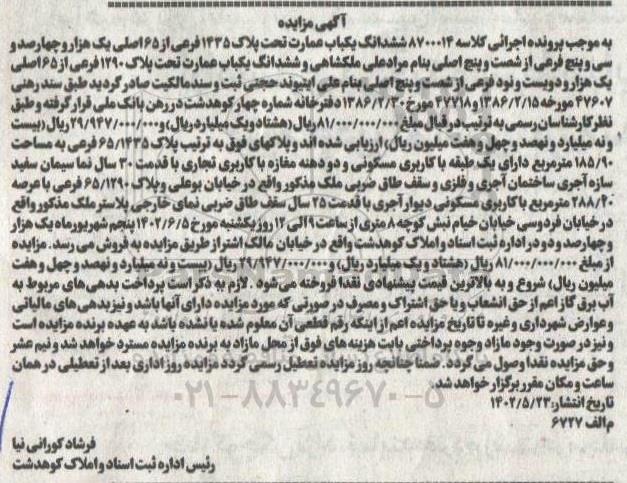 آگهی مزایده
به موجب پرونده اجرائی کلاسه ۸۷۰۰۰۱۴ ششدانگ یکباب عمارت تحت پلاک ۱۴۳۵ فرعی از ۶۵ اصلی یک هزار و چهارصد و
سی و پنج فرعی از شصت و پنج اصلی بنام مرادعلی ملکشاهی و ششدانگ یکباب عمارت تحت پلاک ۱۲۹۰ فرعی از ۶۵ اصلی
یک هزار و دویست و نود فرعی از شصت و پنج اصلی بنام علی ایتیوند حجتی ثبت و سند مالکیت صادر گردید طبق سند رهنی
۴۷۶۰۷ مورخه ۱۳۸۶/۲/۱۵ و ۴۷۷۱۸ مورخ ۱۳۸۶/۲/۳۰ دفترخانه شماره چهار کوهدشت در رهن بانک ملی قرار گرفته و طبق
نظر کارشناسان رسمی به ترتیب در قبال مبلغ ۸۱/۰۰۰/۰۰۰/۰۰۰ ریال (هشتاد و یک میلیارد ریال) و ۲۹/۹۴۷/۰۰۰/۰۰۰ ریال (بیست
و نه میلیارد و نهصد و چهل و هفت میلیون ریال) ارزیابی شده اند و پلاکهای فوق به ترتیب پلاک ۶۵/۱۴۳۵ فرعی به مساحت
۱۸۵/۹۰ مترمربع دارای یک طبقه با کاربری مسکونی و دو دهنه مغازه با کاربری تجاری با قدمت ۳۰ سال نما سیمان سفید
سازه آجری ساختمان آجری و فلزی و سقف طاق ضربی ملک مذکور واقع در خیابان بوعلی و پلاک ۶۵/۱۲۹۰ فرعی با عرصه
۲۸۸/۲۰ مترمربع با کاربری مسکونی دیوار آجری با قدمت ۲۵ سال سقف طاق ضربی نمای خارجی پلاستر ملک مذکور واقع
در خیابان فردوسی خیابان خیام نبش کوچه ۸ متری از ساعت ۹ الی ۱۲ روز یکشنبه مورخ ۱۴۰۲/۶/۵ پنجم شهریورماه یک هزار
و چهارصد و دو در اداره ثبت اسناد و املاک کوهدشت واقع در خیابان مالک اشتر از طریق مزایده به فروش می رسد. مزایده
از مبلغ ۸۱/۰۰۰/۰۰۰/۰۰۰ ریال (هشتاد و یک میلیارد ریال) و ۲۹/۹۴۷/۰۰۰/۰۰۰ ریال (بیست و نه میلیارد و نهصد و چهل و هفت
میلیون ریال) شروع و به بالاترین قیمت پیشنهادی نقدا فروخته می شود. لازم به ذکر است پرداخت بدهی های مربوط به
آب برق گاز اعم از حق انشعاب و یا حق اشتراک و مصرف در صورتی که مورد مزایده دارای آنها باشد و نیز بدهی های مالیاتی
و عوارض شهرداری و غیره تا تاریخ مزایده اعم از اینکه رقم قطعی آن معلوم شده یا نشده باشد به عهده برنده مزایده است
و نیز در صورت وجود مازاد وجوه پرداختی بابت هزینه های فوق از محل مازاد به برنده مزایده مسترد خواهد شد و نیم عشر
و حق مزایده نقدا وصول می گردد. ضمنا چنانچه روز مزایده تعطیل رسمی گردد مزایده روز اداری بعد از تعطیلی در همان
ساعت و مکان مقرر برگزار خواهد شد.
تاریخ انتشار: ۱۴۰۲/۵/۲۳
م الف ۶۷۲۷
فرشاد کورانی نیا
رئیس اداره ثبت اسناد و املاک کوهدشت
۰۲۱-۸۸۳۴۹۶۷۰-۵